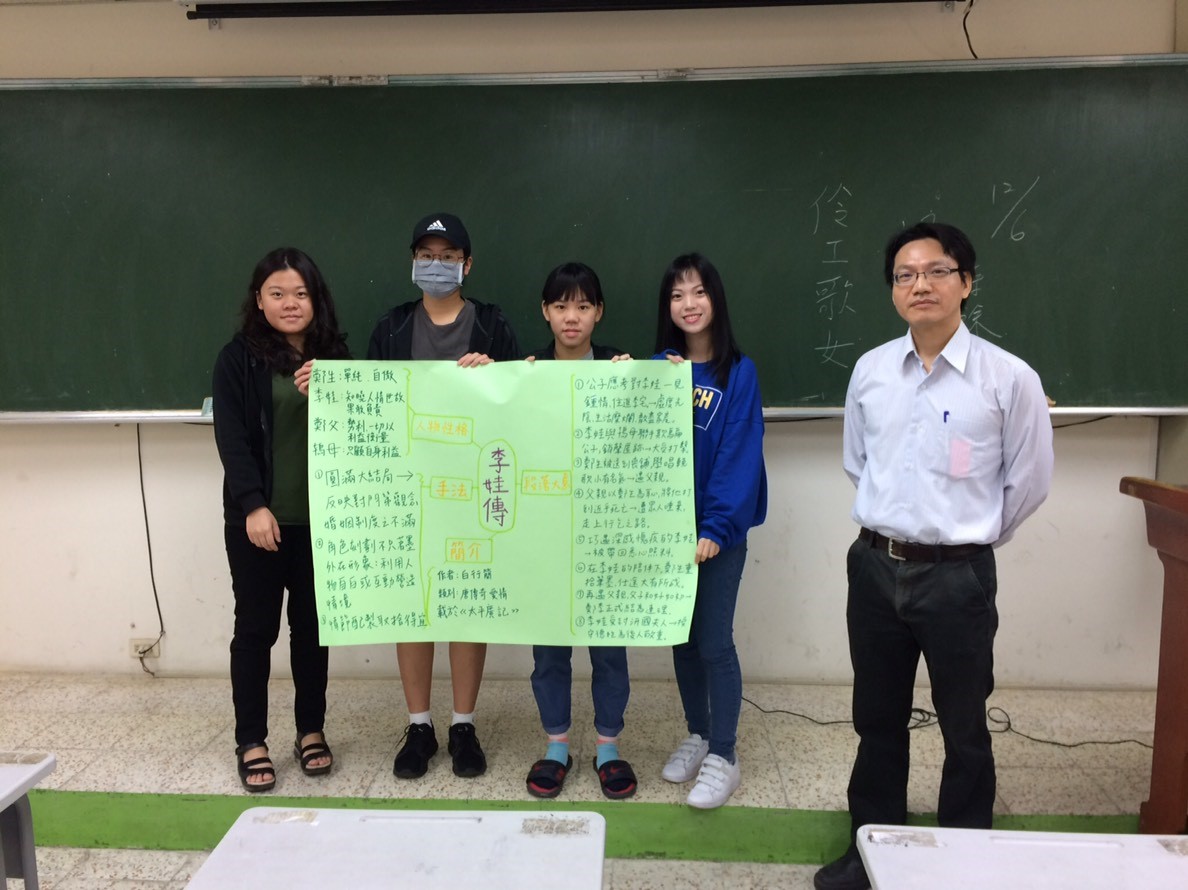 12/6
伶工歌女
鄭生：單純、自傲
李娃：知曉人情世故
果敢負責
鄭父：勢利、一切以
利益衡量
鴇母：只顧自身利益
人物性格
①圓滿大結局→
反映對門第觀念、
婚姻制度之不滿
②角色刻劃不只著墨
外在形象：利用人
物自白或互動營造
情境
③情節配製取捨得宜
手法
簡介
作者：白行簡
類別：唐傳奇愛情
載於《太平廣記》
李娃傳
段落大意
①公子應考對李娃一見
鍾情，住進李宅→虛度光
陰，生活糜爛，散盡家產。
②李娃與鴇母聯手欺騙
公子
③鄭生被送到凶鋪，學唱輓
歌小有名氣→遇父親。
④父親以鄭生為恥，將他打
到近乎死亡→遭眾人唾棄，
走上行乞之路。
⑤巧遇深感愧疚的李娃
→被帶回悉心照料。
⑥在李娃的陪伴下，鄭生重
拾筆墨，仕途大有所成。
⑦再遇父親，父子和好如初→
鄭李正式結為連理。
⑧李娃受封汧國夫人→
為後人敬重。
adidas
CH